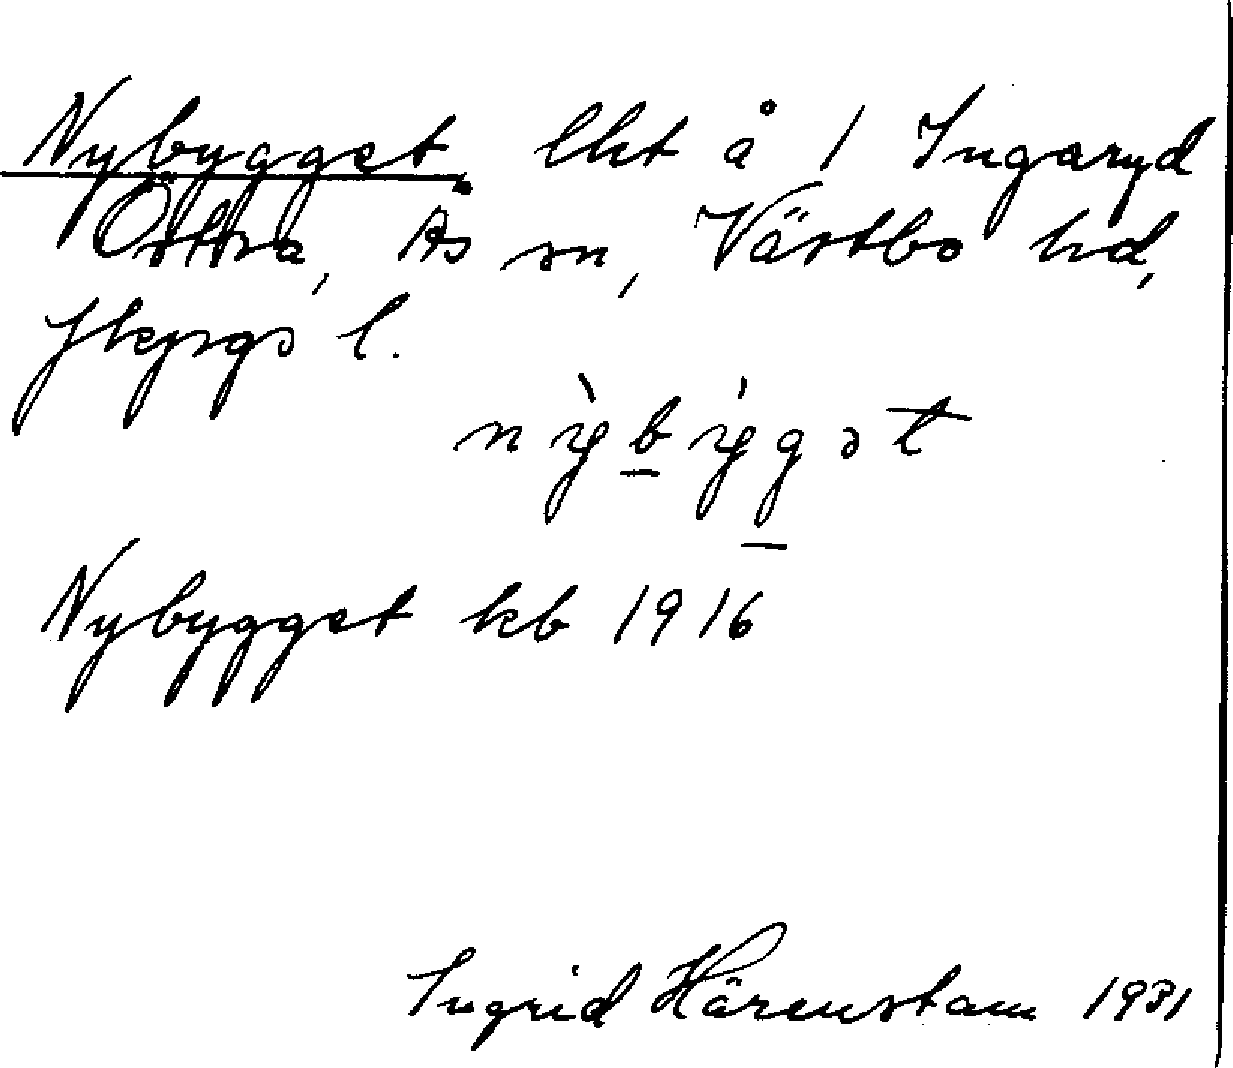 Nybygget lht å 1 Ingaryd
Östra, Ås sn, Västbo hd,
Jkpgs l.
nỳbýgət
Nybygget kb 1916
Ingrid Härenstam 1931